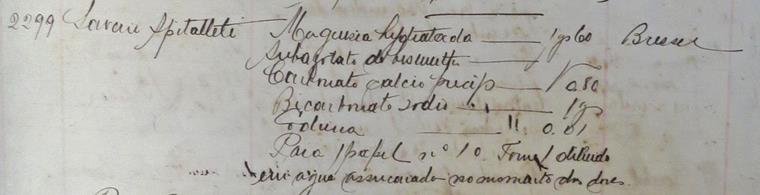 2299 Savere Spitalleti Magnesia hydratada 1gr60 Bresser
Subazotato de bismutho
Carbonato calcio precip 0.80
Bicarbonato sodio " 1g
Codeina " 0.01
Para 1 papel nº 10. Tome 1 diluido
em agua assucarada no momento das dores.